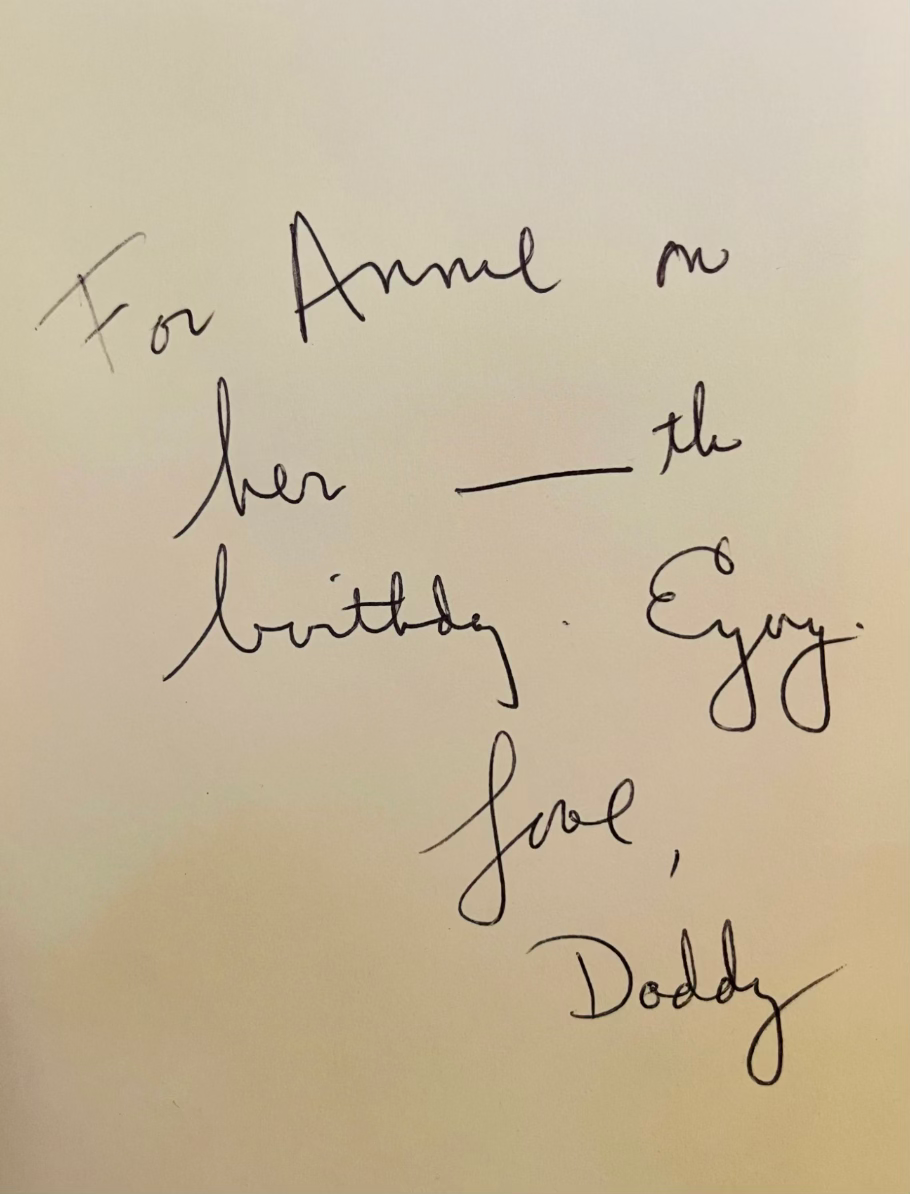 For Annie on
her ____th
birthday. Enjoy.
Love,
Daddy